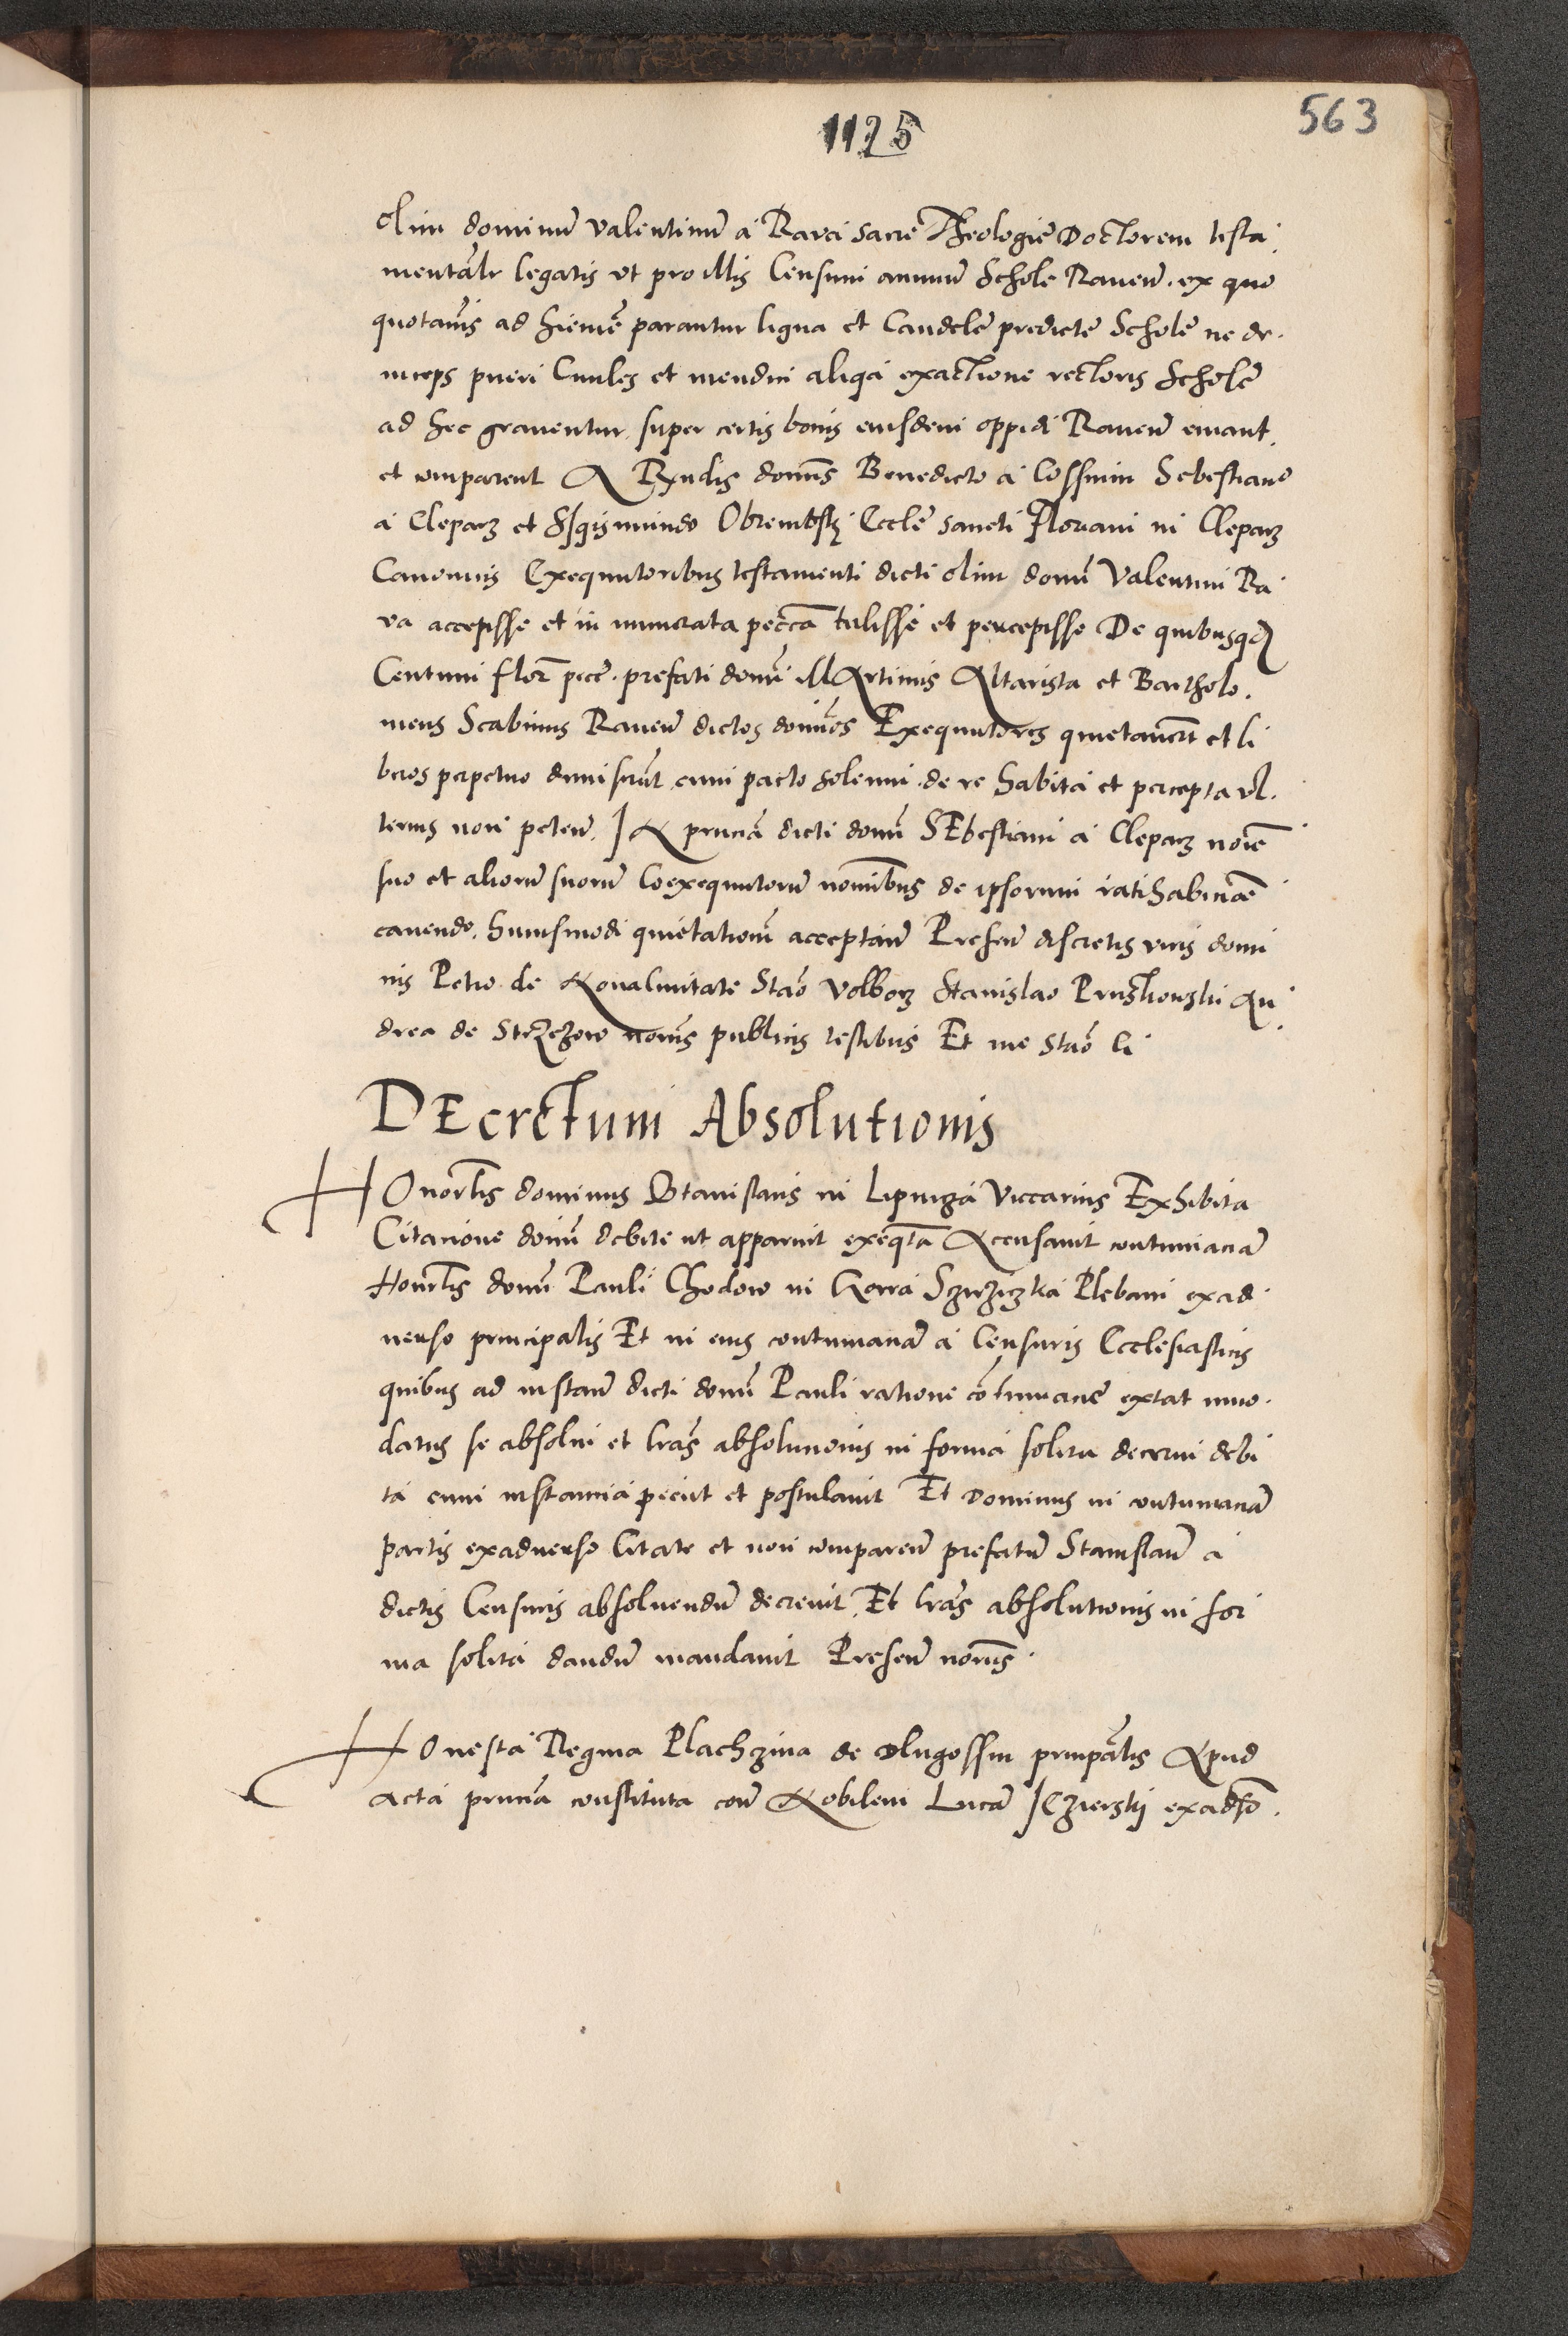 1125
563
olim dominū Valentinū a Rava sacrē Theologiē Doctorem testa
mentālr legatis ut pro illis Censum annuū Schole Raveñ. ex quo
quotānis ad hiemē parantur ligna et Candelē predictē Scholē ne de
inceps pueri Ciules et mendici aliqa exactione rectoris Scholē
ad hec graventur super certis bonis eiusdem oppidi Raveñ emant
et comparent A Rndis domīs Benedicto a Cossmin Sebestiano
a Cleparz et Sigismundo Obrembskj Ecclē sancti Floriani in Cleparz
Canonicis Exequutoribus testamenti dicti olim domī Valentini Ra
va accepisse et in numerata peccā tulisse et percepisse De quibusqđ
Centum flor pecē. prefati domī Martinus Altarista et Bartholo.
meus Scabinus Raveñ dictos domīos Exequutores quietaverūt et li
beros perpetuo dimiserūt cum pacto solemni de re habita et percepta ul.
terius non peteñ. In pruciā dicti domī SEbestiani a Cleparz noīe
suo et aliorū suorū Coexequutorū nominibus de ipsorum ratihabicōe
cavendo. huiusmodi quietationē acceptāñ Preseñ discretis viris domi
nis Petro de Novalivitate Stāo Volborz Stanislao Pruskowskii An
drea de Strzezow notīs publicis testibus Et me Stāo li
DEcretum Absolutionis
HOnorlīs dominus Stanislaus in Lipnicza Viccarius Exhibita
Citacione domī debite ut apparuit exeqta Accusavit contumaciā
Honorlīs domī Pauli Chodow in Gorra Sczirziczka Plebani exad
verso principalis Et in eius contumaciā a Censuris Ecclesiasticis
quibus ad instañ dicti domī Pauli ratione cōtumaciē extat inno
datus se absolvi et lrās absolucionis in forma solita decerni debi
ta cum instancia peciit et postulavit Et Dominus in contumaciā
partis exadverso Citate et non compareñ prefatū Stanislaū a
dictis Censuris absolvendū decrevit. Et lrās absolutionis in for
ma solita dandū mandavit Preseñ notīs
HOnesta Regina Plachczina de Dlugossin princpālis Apud
acta pruciā constituta coñ Nobilem Lucā Jezierskij exadso.